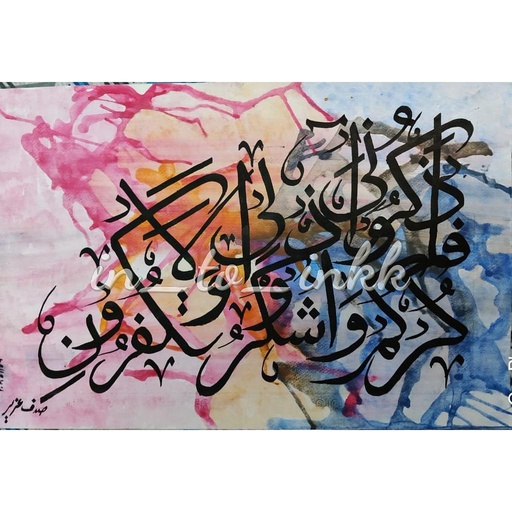 فاذكروني أذكركم واشكروا لي ولا تكفرون
in__to__inkk
صدف عزیز